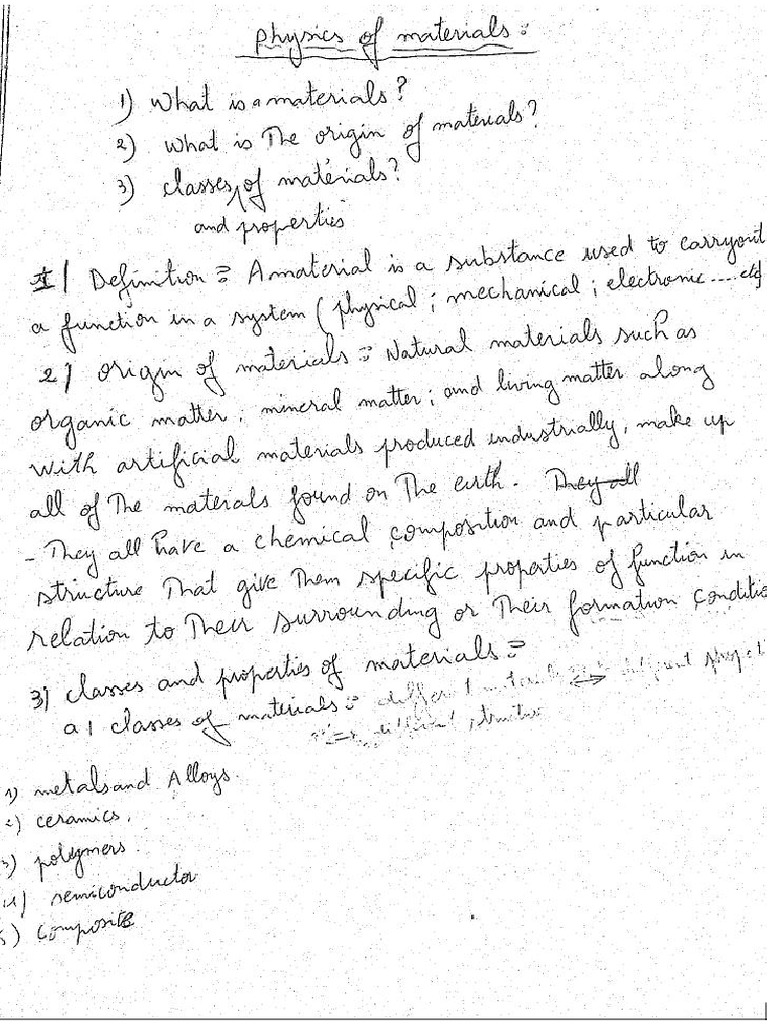 physics of materials :
1) What is a materials?
2) What is The origin of materials?
3) classes of matérials?
and properties
1/ Definition : A material is a substance used to carryout
a function in a system (physical ; mechanical ; electronic .... etc)
2) origin of materials : Natural materials such as
organic matter, mineral matter ; and living matter along
with artificial materials produced industrially, make up
all of The materals found on The earth. They all
- They all have a chemical composition and particular
structure That give Them specific properties of function in
relation to Their surrounding or Their formation conditio
3) classes and properties of materials :
a) classes of materials : different materials ⟺ different
different structure
1) metals and Alloys.
2) ceramics.
3) polymers.
4) semiconductor
5) Composite